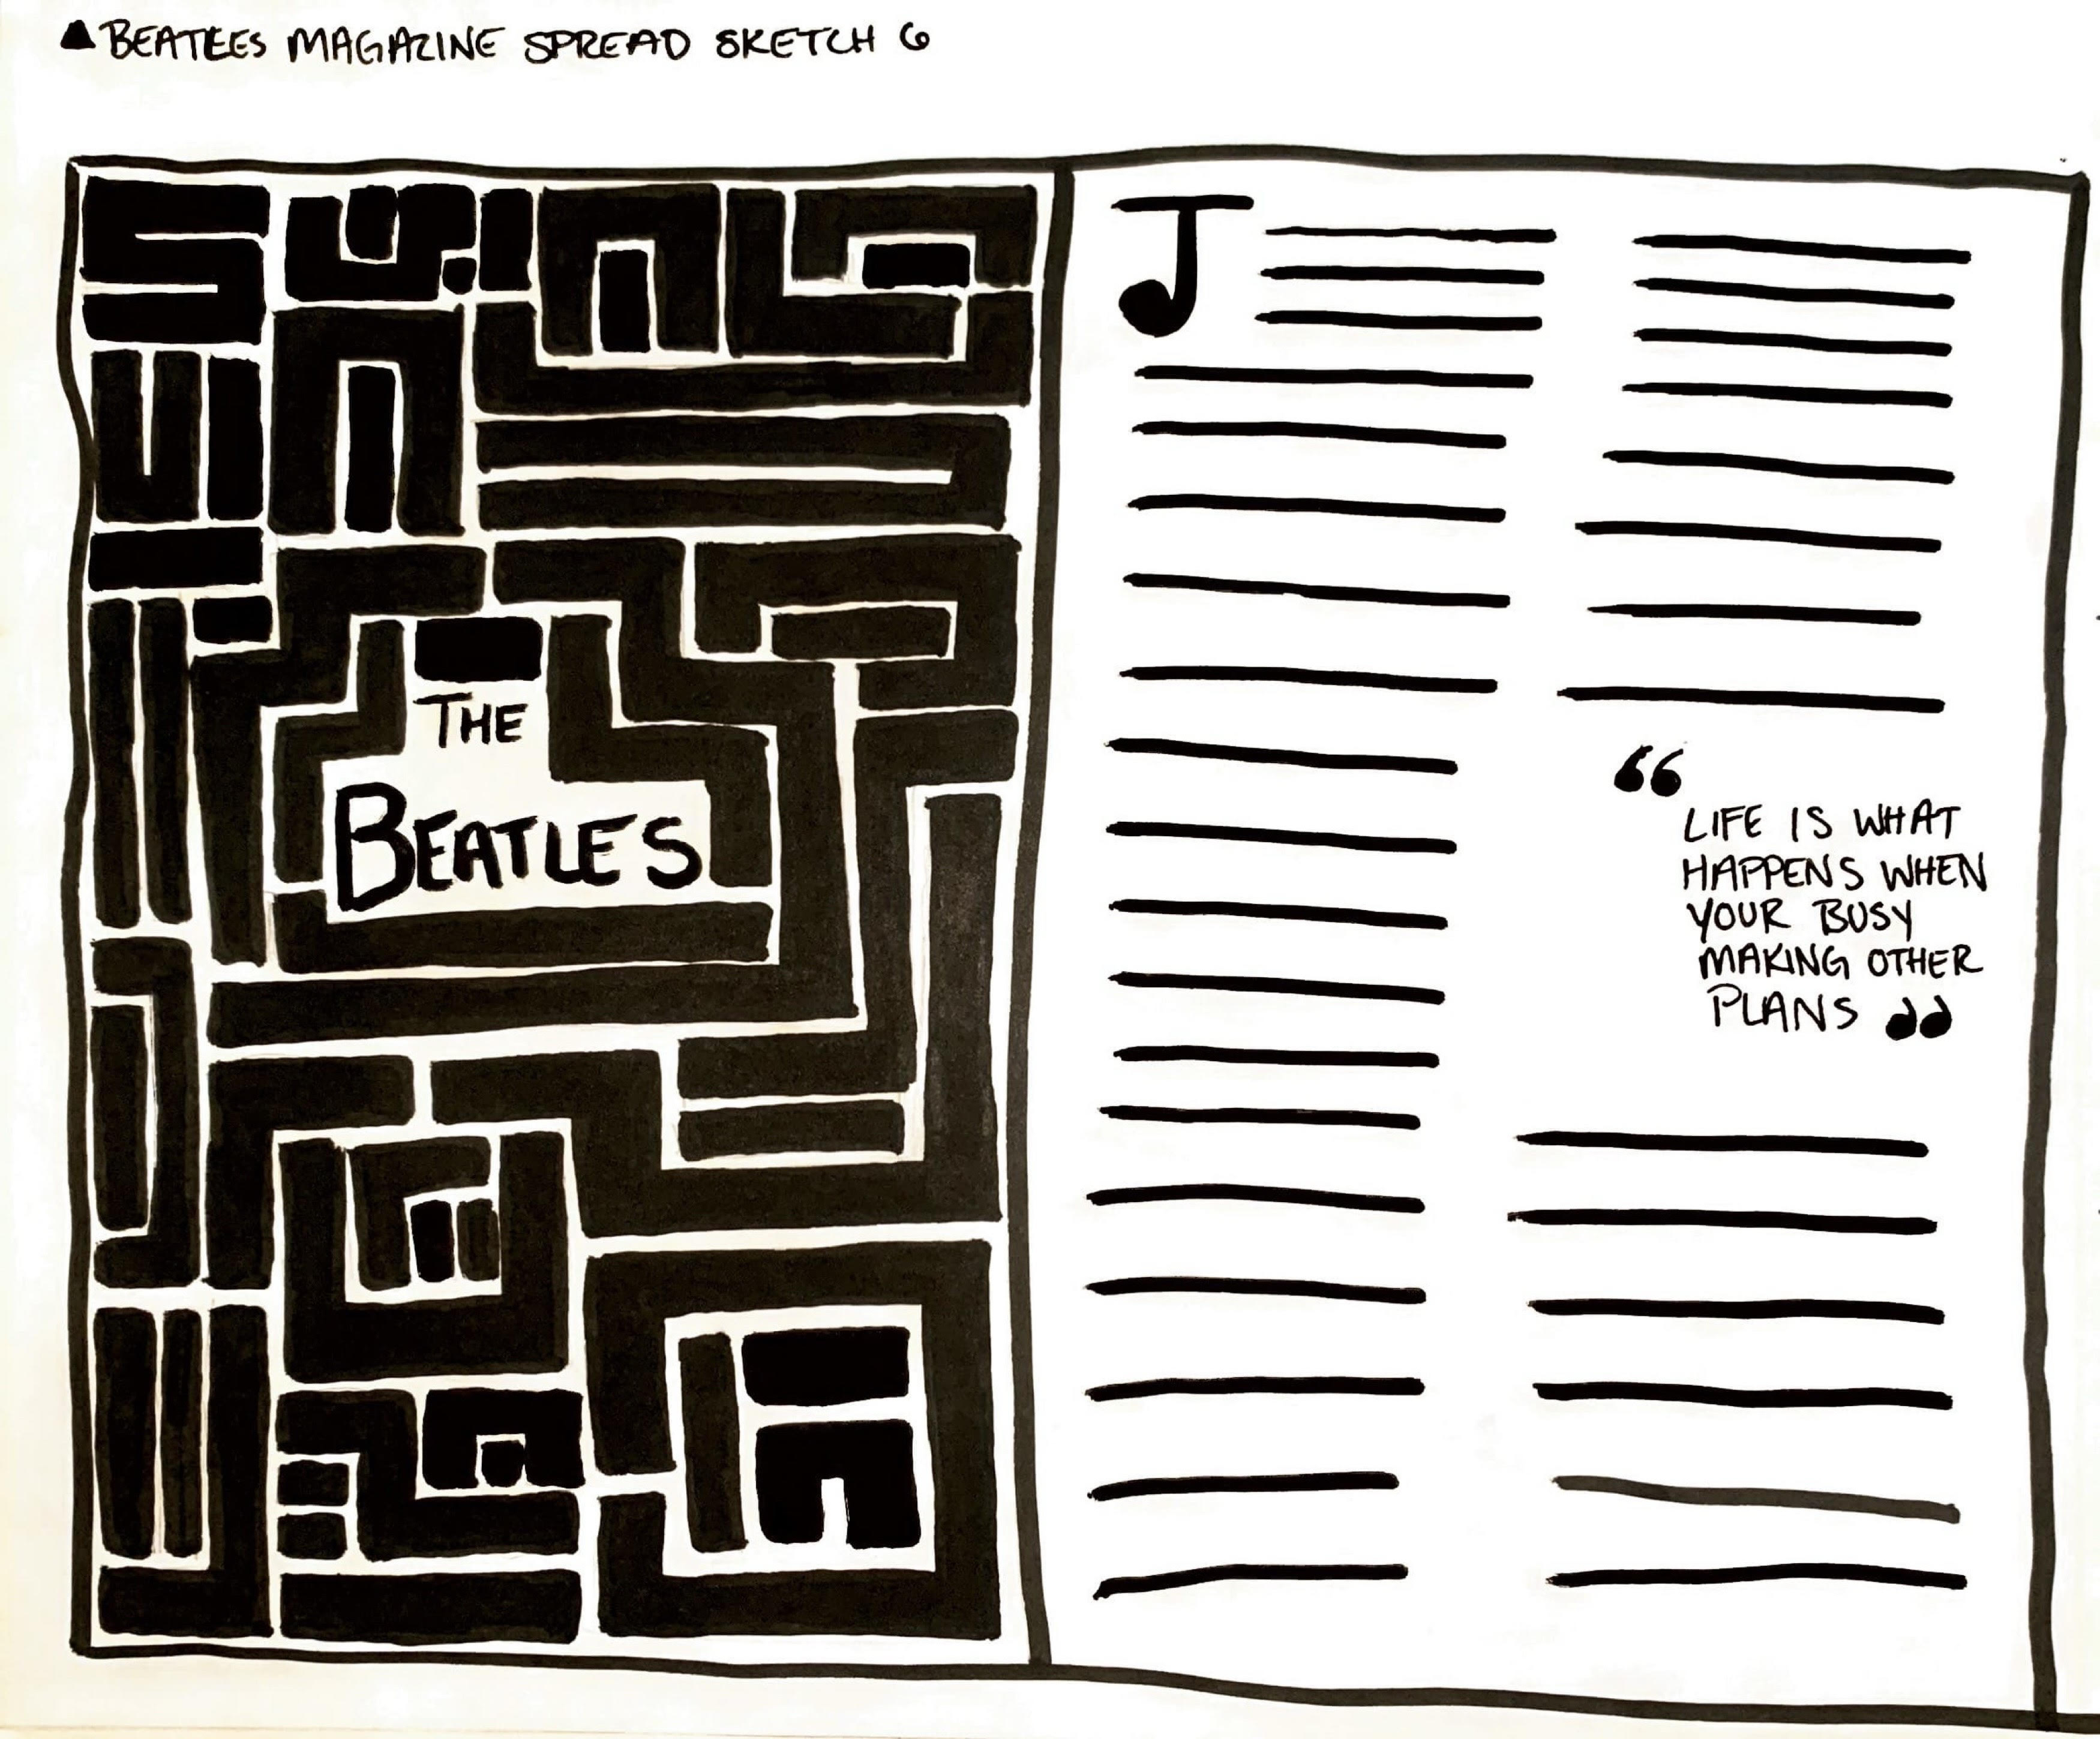 ▲ BEATLES MAGAZINE SPREAD SKETCH 6
THE
BEATLES
J
“
LIFE IS WHAT
HAPPENS WHEN
YOUR BUSY
MAKING OTHER
PLANS ”